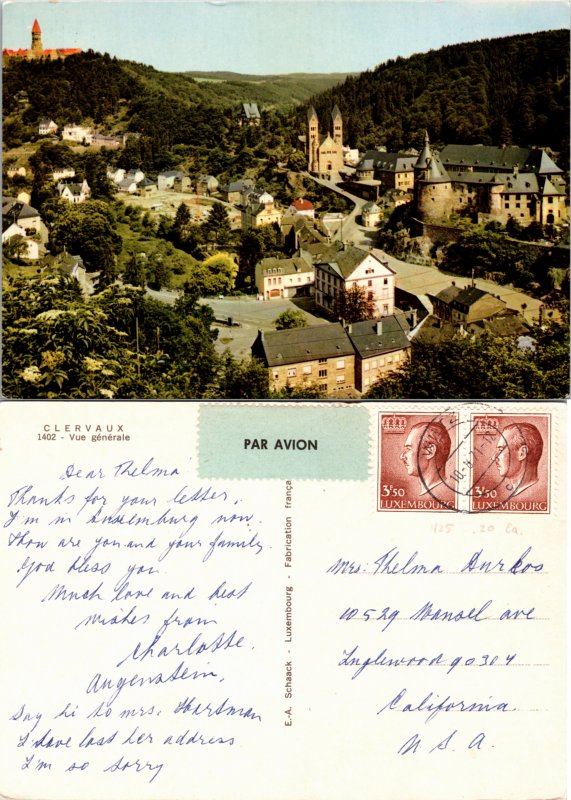 CLERVAUX
1402 - Vue générale
PAR AVION
3F50
LUXEMBOURG
3F50
LUXEMBOURG
Dear Thelma
Thanks for your letter,
I'm in Luxemburg now.
How are you and your family.
God bless you.
Much love and best
wishes from
Charlotte.
Augenstein.
Say hi to Mrs. Hartman
I have lost her address
I'm so sorry
E.-A. Schaack - Luxembourg - Fabrication françai
1125 .20 La.
Mrs. Thelma Durkos
10529 Mansel ave
Inglewood 90304
California.
U.S.A.